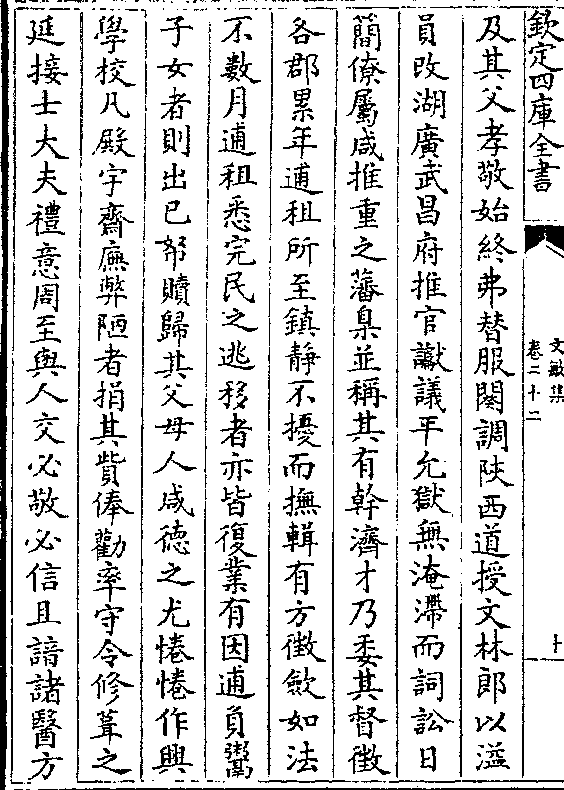 欽定四庫全書
文敏集
卷二十二
十
及其父孝敬始終弗替服闋調陜西道授文林郎以溢
員改湖廣武昌府推官讞議平允獄無淹滯而詞訟日
簡僚屬咸推重之藩臬並稱其有幹濟才乃委其督徴
各郡累年逋租所至鎮静不擾而撫輯有方徴斂如法
不數月逋租悉完民之逃移者亦皆復業有因逋負鬻
子女者則出已帑贖歸其父母人咸徳之尤惓惓作興
學校凡殿宇齋廡弊陋者捐其貲俸勸率守令修葺之
延接士大夫禮意周至與人交必敬必信且諳諸醫方